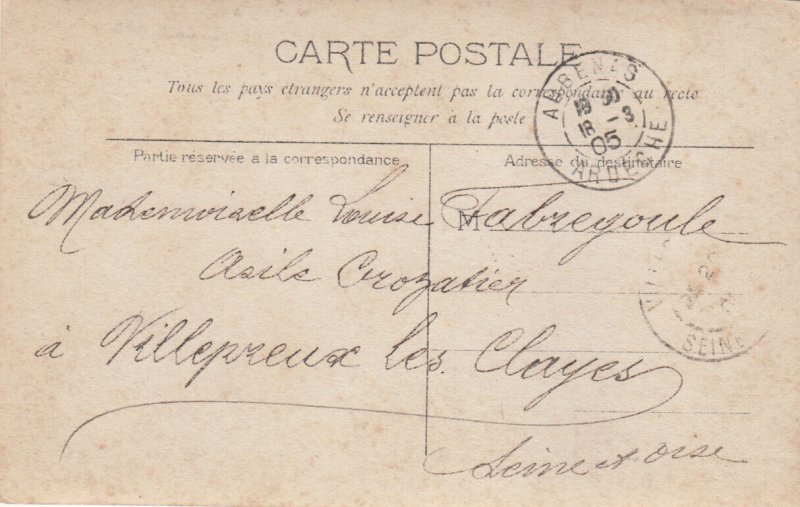 CARTE POSTALE
Tous les pays étrangers n'acceptent pas la correspondance au recto
Se renseigner à la poste
Partie réservée a la correspondance
Adresse du destinataire
AUBENAS
05
ARDÈCHE
Mademoiselle Louise M Fabregoule
Asile Crozatier
à Villepreux les Clayes
Seine et Oise
SEINE